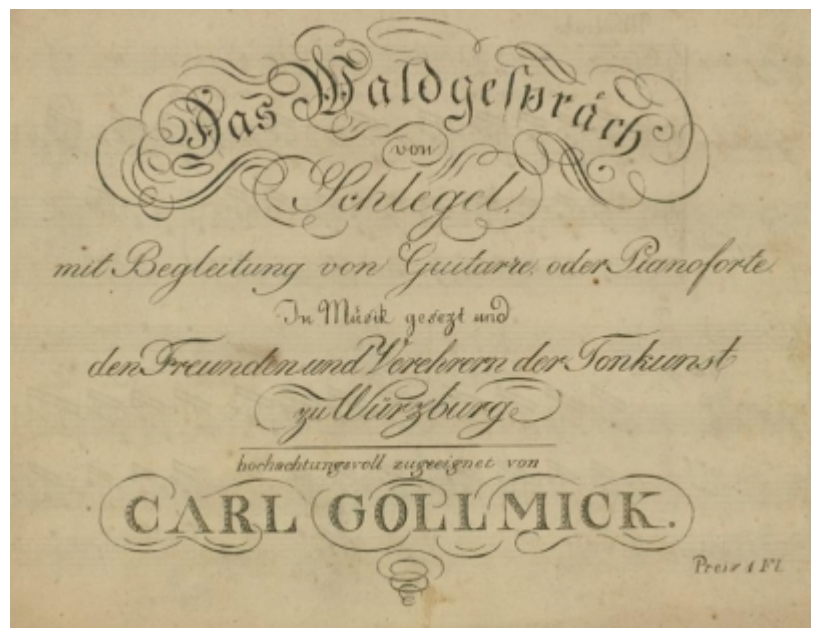 Das Waldgespräch
von
Schlegel.
mit Begleitung von Guitarre oder Pianoforte
In Musik gesezt und
den Freunden und Verehrern der Tonkunst
zu Würzburg
hochachtungsvoll zugeeignet von
CARL GOLLMICK.
Preis 1 Fl